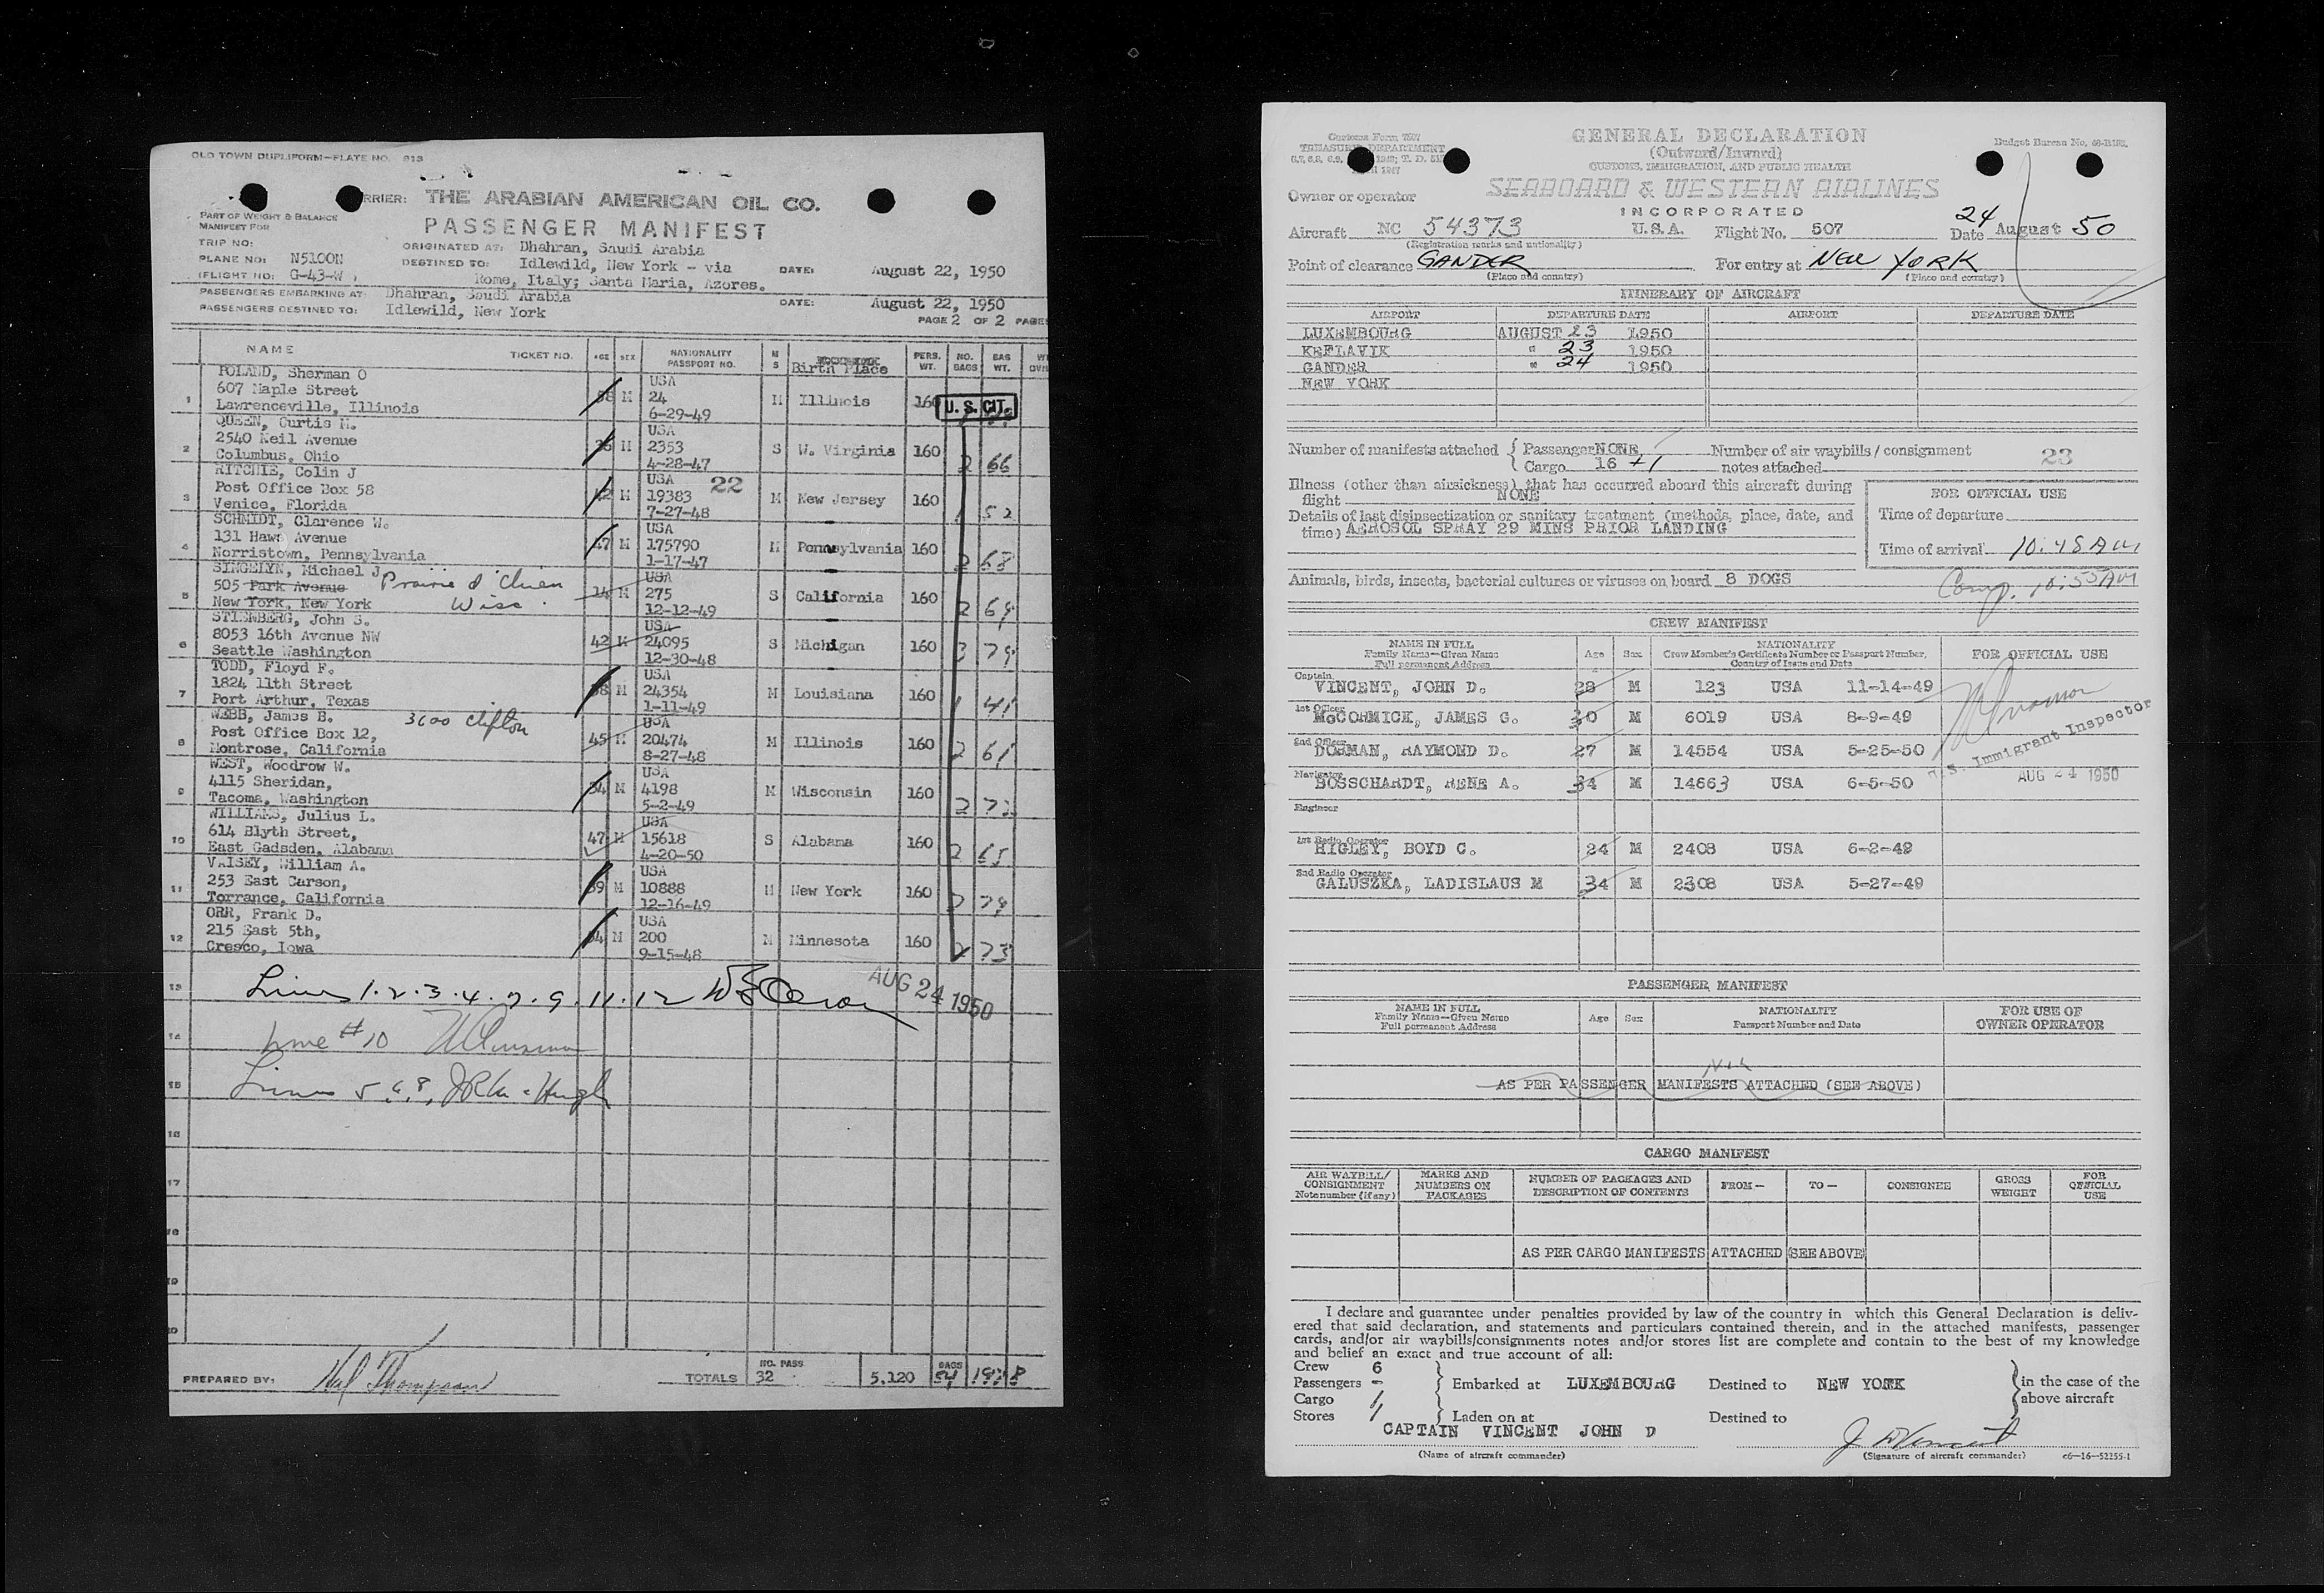 OLD TOWN DUPLIFORM—PLATE NO. 913
RRIER: THE ARABIAN AMERICAN OIL CO.
PART OF WEIGHT & BALANCE
MANIFEST FOR
PASSENGER MANIFEST
TRIP NO:
ORIGINATED AT: Dhahran, Saudi Arabia
PLANE NO: N5100N
DESTINED TO: Idlewild, New York - via
DATE: August 22, 1950
FLIGHT NO: G-43-W
Rome, Italy; Santa Maria, Azores.
PASSENGERS EMBARKING AT: Dhahran, Saudi Arabia
DATE: August 22, 1950
PASSENGERS DESTINED TO: Idlewild, New York
PAGE 2 OF 2 PAGES
NAME TICKET NO. AGE SEX NATIONALITY PASSPORT NO. M S Birth Place PERS. WT. NO. BAGS BAG WT.
POLAND, Sherman O USA
607 Maple Street
1 38 M 24 M Illinois 160 U. S. CIT.
Lawrenceville, Illinois 6-29-49
QUEEN, Curtis M. USA
2 2540 Neil Avenue M 2353 S W. Virginia 160 2 66
Columbus, Ohio 4-28-47
RITCHIE, Colin J USA 22
3 Post Office Box 58 42 M 19383 M New Jersey 160 1 52
Venice, Florida 7-27-48
SCHMIDT, Clarence W. USA
4 131 Haws Avenue 47 M 175790 M Pennsylvania 160 2 68
Norristown, Pennsylvania 1-17-47
SINGELYN, Michael J Prairie d'Chien USA
5 505 Park Avenue M 275 S California 160 2 69
New York, New York Wisc. 12-12-49
STIENBERG, John S. USA
6 8053 16th Avenue NW 42 M 24095 S Michigan 160 3 79
Seattle Washington 12-30-48
TODD, Floyd F. USA
7 1824 11th Street 38 M 24354 M Louisiana 160 1 41
Port Arthur, Texas 1-11-49
WEBB, James B. 3600 Clifton USA
8 Post Office Box 12, 45 M 20474 M Illinois 160 2 61
Montrose, California 8-27-48
WEST, Woodrow W. USA
9 4115 Sheridan, 34 M 4198 M Wisconsin 160 2 72
Tacoma, Washington 5-2-49
WILLIAMS, Julius L. USA
10 614 Blyth Street, 47 M 15618 S Alabama 160 2 65
East Gadsden, Alabama 4-20-50
VAISEY, William A. USA
11 253 East Carson, 39 M 10888 M New York 160 2 79
Torrance, California 12-16-49
ORR, Frank D. USA
12 215 East 5th, M 200 M Minnesota 160 2 73
Cresco, Iowa 9-15-48
13 Lines 1.2.3.4.7.9.11.12 AUG 24 1950
14 Line #10
15 Lines 5 6 8,
16
17
18
19
20
PREPARED BY: Hal Thompson TOTALS NO. PASS. 32 5,120 BAGS
Customs Form 7507
TREASURY DEPARTMENT
GENERAL DECLARATION
(Outward/Inward)
Budget Bureau No.
CUSTOMS, IMMIGRATION, AND PUBLIC HEALTH
Owner or operator SEABOARD & WESTERN AIRLINES
INCORPORATED
Aircraft NC 54373 U.S.A. Flight No. 507 Date 24 August 50
(Registration marks and nationality)
Point of clearance GANDER For entry at NEW YORK
(Place and country) (Place and country)
ITINERARY OF AIRCRAFT
AIRPORT DEPARTURE DATE AIRPORT DEPARTURE DATE
LUXEMBOURG AUGUST 23 1950
KEFLAVIK " 23 1950
GANDER " 24 1950
NEW YORK
Number of manifests attached { Passenger NONE Number of air waybills / consignment
Cargo 16 +1 notes attached 23
Illness (other than airsickness) that has occurred aboard this aircraft during
flight NONE
FOR OFFICIAL USE
Details of last disinsectization or sanitary treatment (methods, place, date, and
time) AEROSOL SPRAY 29 MINS PRIOR LANDING
Time of departure
Time of arrival 10:48 AM
Animals, birds, insects, bacterial cultures or viruses on board 8 DOGS
Comp. 10:55 AM
CREW MANIFEST
NAME IN FULL Age Sex NATIONALITY FOR OFFICIAL USE
Family Name—Given Name Crew Member's Certificate Number or Passport Number,
Full permanent Address Country of Issue and Date
Captain
VINCENT, JOHN D. 28 M 123 USA 11-14-49
1st Officer
McCORMICK, JAMES G. 30 M 6019 USA 8-9-49
2nd Officer
DORMAN, RAYMOND D. 27 M 14554 USA 5-25-50
Navigator
BOSSCHARDT, RENE A. 34 M 14663 USA 6-5-50
U.S. Immigrant Inspector
AUG 24 1950
Engineer
1st Radio Operator
HIGLEY, BOYD C. 24 M 2408 USA 6-2-49
2nd Radio Operator
GALUSZKA, LADISLAUS M 34 M 2308 USA 5-27-49
PASSENGER MANIFEST
NAME IN FULL Age Sex NATIONALITY FOR USE OF
Family Name—Given Name Passport Number and Date OWNER OPERATOR
Full permanent Address
Nil
AS PER PASSENGER MANIFESTS ATTACHED (SEE ABOVE)
CARGO MANIFEST
AIR WAYBILL/ CONSIGNMENT Note number (if any) MARKS AND NUMBERS ON PACKAGES NUMBER OF PACKAGES AND DESCRIPTION OF CONTENTS FROM— TO— CONSIGNEE GROSS WEIGHT FOR OFFICIAL USE
AS PER CARGO MANIFESTS ATTACHED (SEE ABOVE)
I declare and guarantee under penalties provided by law of the country in which this General Declaration is deliv-
ered that said declaration, and statements and particulars contained therein, and in the attached manifests, passenger
cards, and/or air waybills/consignments notes and/or stores list are complete and contain to the best of my knowledge
and belief an exact and true account of all:
Crew 6
Passengers - Embarked at LUXEMBOURG Destined to NEW YORK in the case of the
Cargo 1 above aircraft
Stores 1 Laden on at Destined to
CAPTAIN VINCENT JOHN D J D Vincent
(Name of aircraft commander) (Signature of aircraft commander) c6—16—52255-1